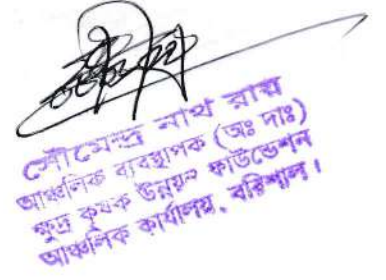 সৌমেন্দ্র নাথ রায়
আঞ্চলিক ব্যবস্থাপক (অঃ দাঃ)
ক্ষুদ্র কৃষক উন্নয়ন ফাউন্ডেশন
আঞ্চলিক কার্যালয়, বরিশাল।